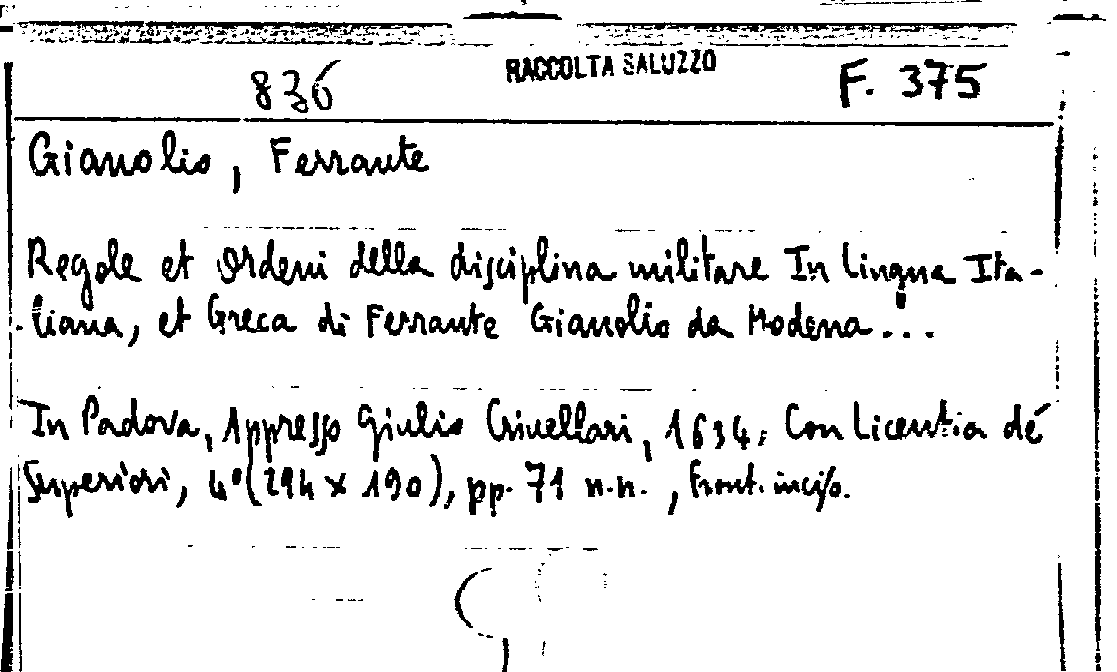 836 RACCOLTA SALUZZO F. 375
Gianolio, Ferrante
Regole et Ordeni della disciplina militare In Lingua Ita-
liana, et Greca di Ferrante Gianolio da Modena...
In Padova, Appresso Giulio Crivellari, 1634, Con Licentia dé
Superiori, 4° (294 x 190), pp. 71 n.n., Front. inciso.